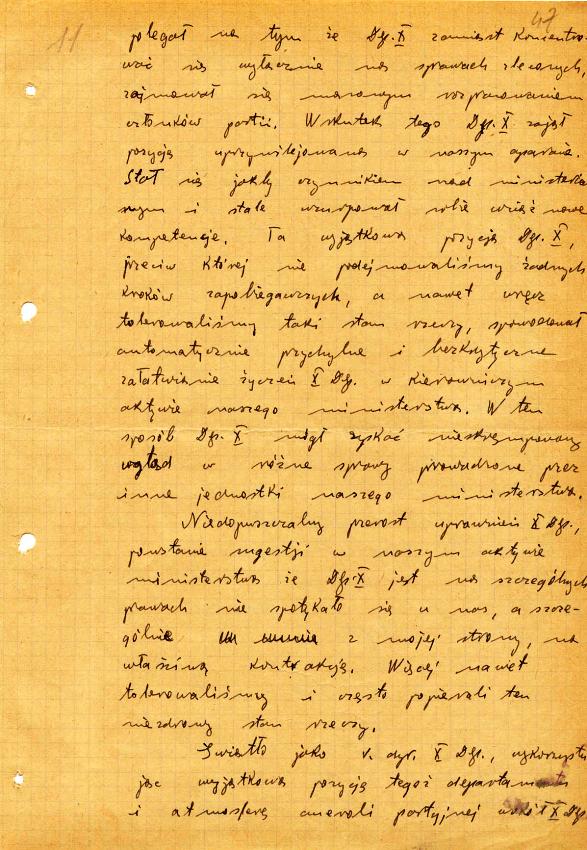 11
47
polegał na tym że Dep. X zamiast koncentro-
wać się wyłącznie na sprawach zleconych,
zajmował się masowym rozpracowaniem
członków partii. Wskutek tego Dep. X zajął
pozycję uprzywilejowaną w naszym aparacie.
Stał się jakby czynnikiem nad minister
nym i stale uzurpował sobie wciąż nowe
kompetencje. Ta wyjątkowa pozycja Dep. X,
przeciw której nie podejmowaliśmy żadnych
kroków zapobiegawczych, a nawet wręcz
tolerowaliśmy taki stan rzeczy, spowodował
automatycznie przychylne i bezkrytyczne
załatwianie życzeń X Dep. w kierowniczym
aktywie naszego ministerstwa. W ten
sposób Dep. X mógł zyskać nieskrępowany
wgląd w różne sprawy prowadzone przez
inne jednostki naszego ministerstwa.
Niedopuszczalny przerost uprawnień X Dep.,
powstanie sugestji w naszym aktywie
ministerstwa że Dep. X jest na szczególnych
prawach nie spotykało się u nas, a szcze-
gólnie z mojej strony, na
właściwą kontrakcję. Więcej nawet
tolerowaliśmy i często popierali ten
niezdrowy stan rzeczy.
Światło jako v. dyr. X Dep., wykorzystu
jąc wyjątkową pozycję tegoż departamentu
i atmosferę anerali partyjnej wokół X Dep